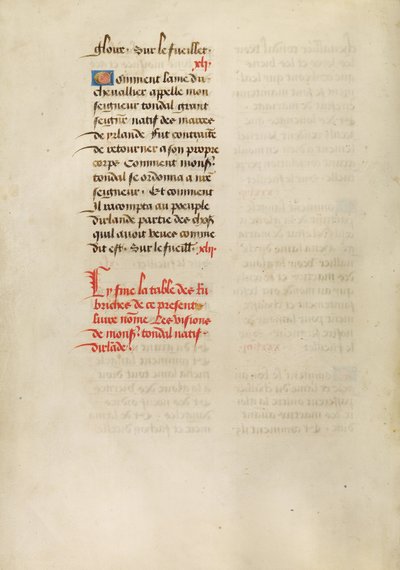 gloire · Sur le fueillet
xli·
Comment lame du
chevallier appelle mon
seigneur tondal grant
seignr natif des marces
de yrlande Fut contrainte
de retourner a son propre
corps Comment monsr
tondal se ordonna a nre
seigneur · Et comment
Il racompta au poeuple
dirlande partie des choses
quil avoit veues comme
dit est · Sur le fueillt xlii·
Cy fine la table des Ru
briches de ce present
livre nomme Les visions
de monsr tondal natif
dirlande